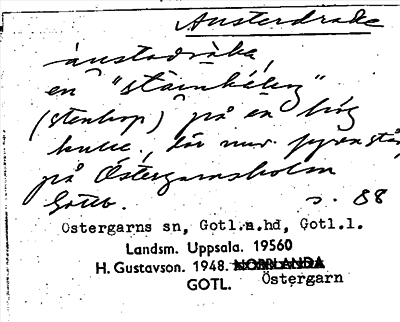 Austerdrake
austadråka,
en "stäinkálery"
(stenhop) på en hög
kulle, där nuv. fyren står
på Östergarnsholm
Gotl. s. 88
Ostergarns sn, Gotl.n.hd, Gotl.l.
Landsm. Uppsala. 19560
H. Gustavson. 1948. NORRLANDA
GOTL. Östergarn